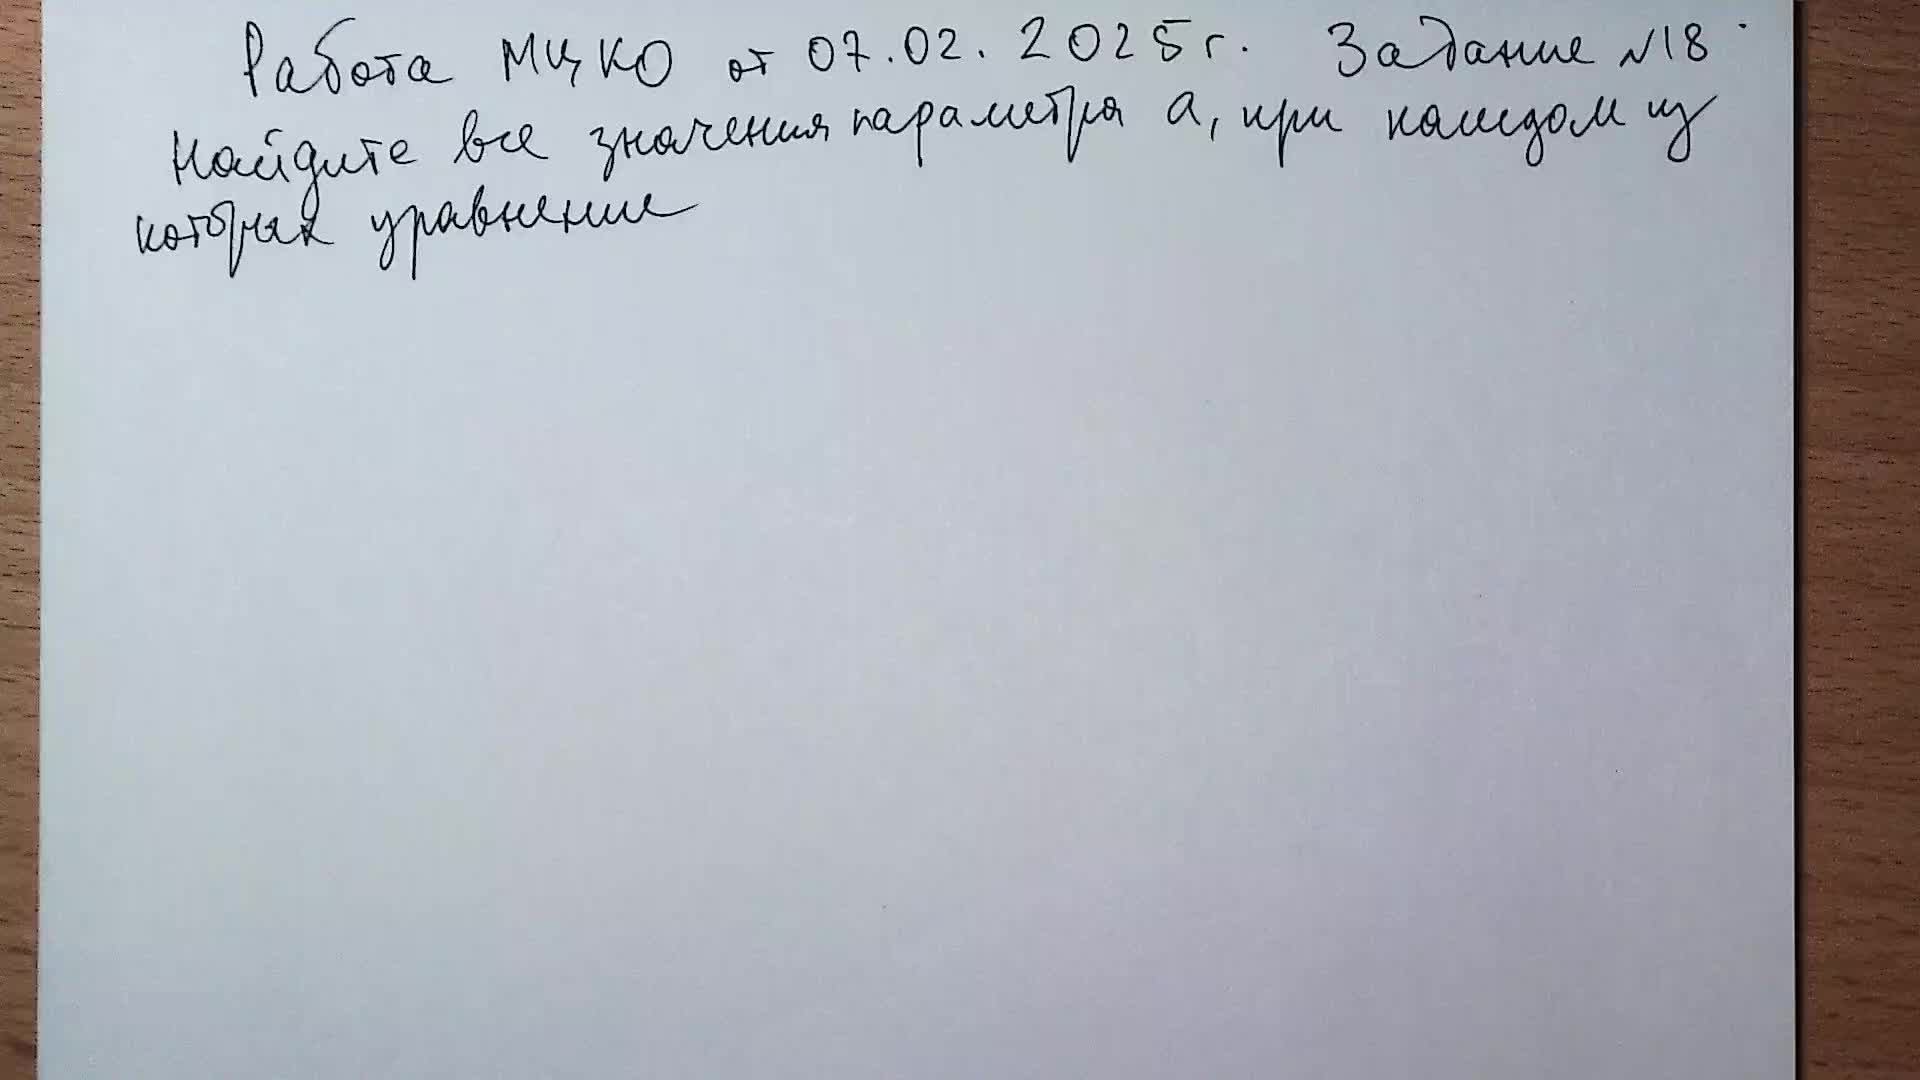 Работа МЦКО от 07.02.2025г. Задание №18
Найдите все значения параметра а, при каждом из
которых уравнение